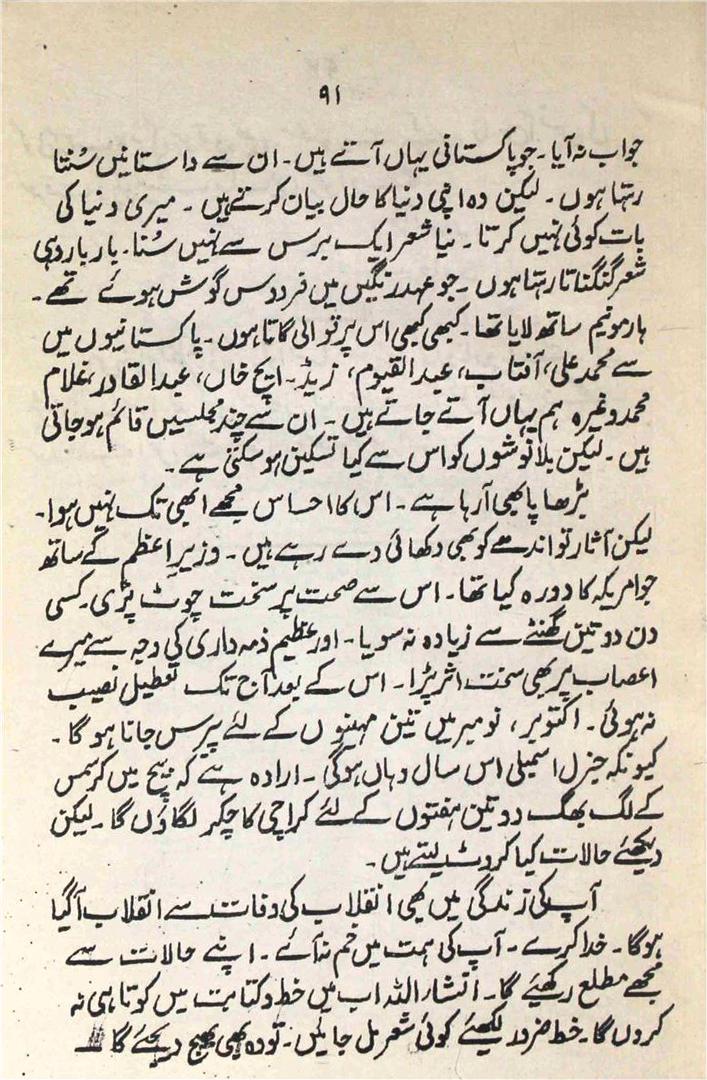 ۹۱
جواب نہ آیا۔ جو پاکستانی یہاں آتے ہیں۔ ان سے داستانیں سُنتا
رہتا ہوں۔ لیکن وہ اپنی دنیا کا حال بیان کرتے ہیں۔ میری دنیا کی
بات کوئی نہیں کرتا۔ نیا شعر ایک برس سے نہیں سُنا۔ بار بار وہی
شعر گنگناتا رہتا ہوں۔ جو عہد رنگیں میں فردوس گوش ہوئے تھے۔
ہارمونیم ساتھ لایا تھا۔ کبھی کبھی اس پر قوالی گاتا ہوں۔ پاکستانیوں میں
سے محمد علی، آفتاب، عبدالقیوم، زیڈ۔ ایچ خاں، عبدالقادر، غلام
محمد وغیرہ ہم یہاں آتے جاتے ہیں۔ ان سے چند مجلسیں قائم ہو جاتی
ہیں۔ لیکن بلانوشوں کو اس سے کیا تسکین ہو سکتی ہے۔
بڑھاپا بھی آ رہا ہے۔ اس کا احساس مجھے ابھی تک نہیں ہوا۔
لیکن آثار تو اندھے کو بھی دکھائی دے رہے ہیں۔ وزیرِ اعظم کے ساتھ
جو امریکہ کا دورہ کیا تھا۔ اس سے صحت پر سخت چوٹ پڑی۔ کسی
دن دو تین گھنٹے سے زیادہ نہ سویا۔ اور عظیم ذمہ داری کی وجہ سے میرے
اعصاب پر بھی سخت اثر پڑا۔ اس کے بعد آج تک تعطیل نصیب
نہ ہوئی۔ اکتوبر، نومبر میں تین مہینوں کے لئے پیرس جانا ہو گا۔
کیونکہ جنرل اسمبلی اس سال وہاں ہو گی۔ ارادہ ہے کہ بیچ میں کرسمس
کے لگ بھگ دو تین ہفتوں کے لئے کراچی کا چکر لگاؤں گا۔ لیکن
دیکھئے حالات کیا کروٹ لیتے ہیں۔
آپ کی زندگی میں بھی انقلاب کی وفات سے انقلاب آ گیا
ہو گا۔ خدا کرے۔ آپ کی ہمت میں خم نہ آئے۔ اپنے حالات سے
مجھے مطلع رکھیئے گا۔ انشاء اللہ اب میں خط و کتابت میں کوتاہی نہ
کروں گا۔ خط ضرور لکھیئے کوئی شعر مل جائیں۔ تو وہ بھی بھیج دیجئے گا